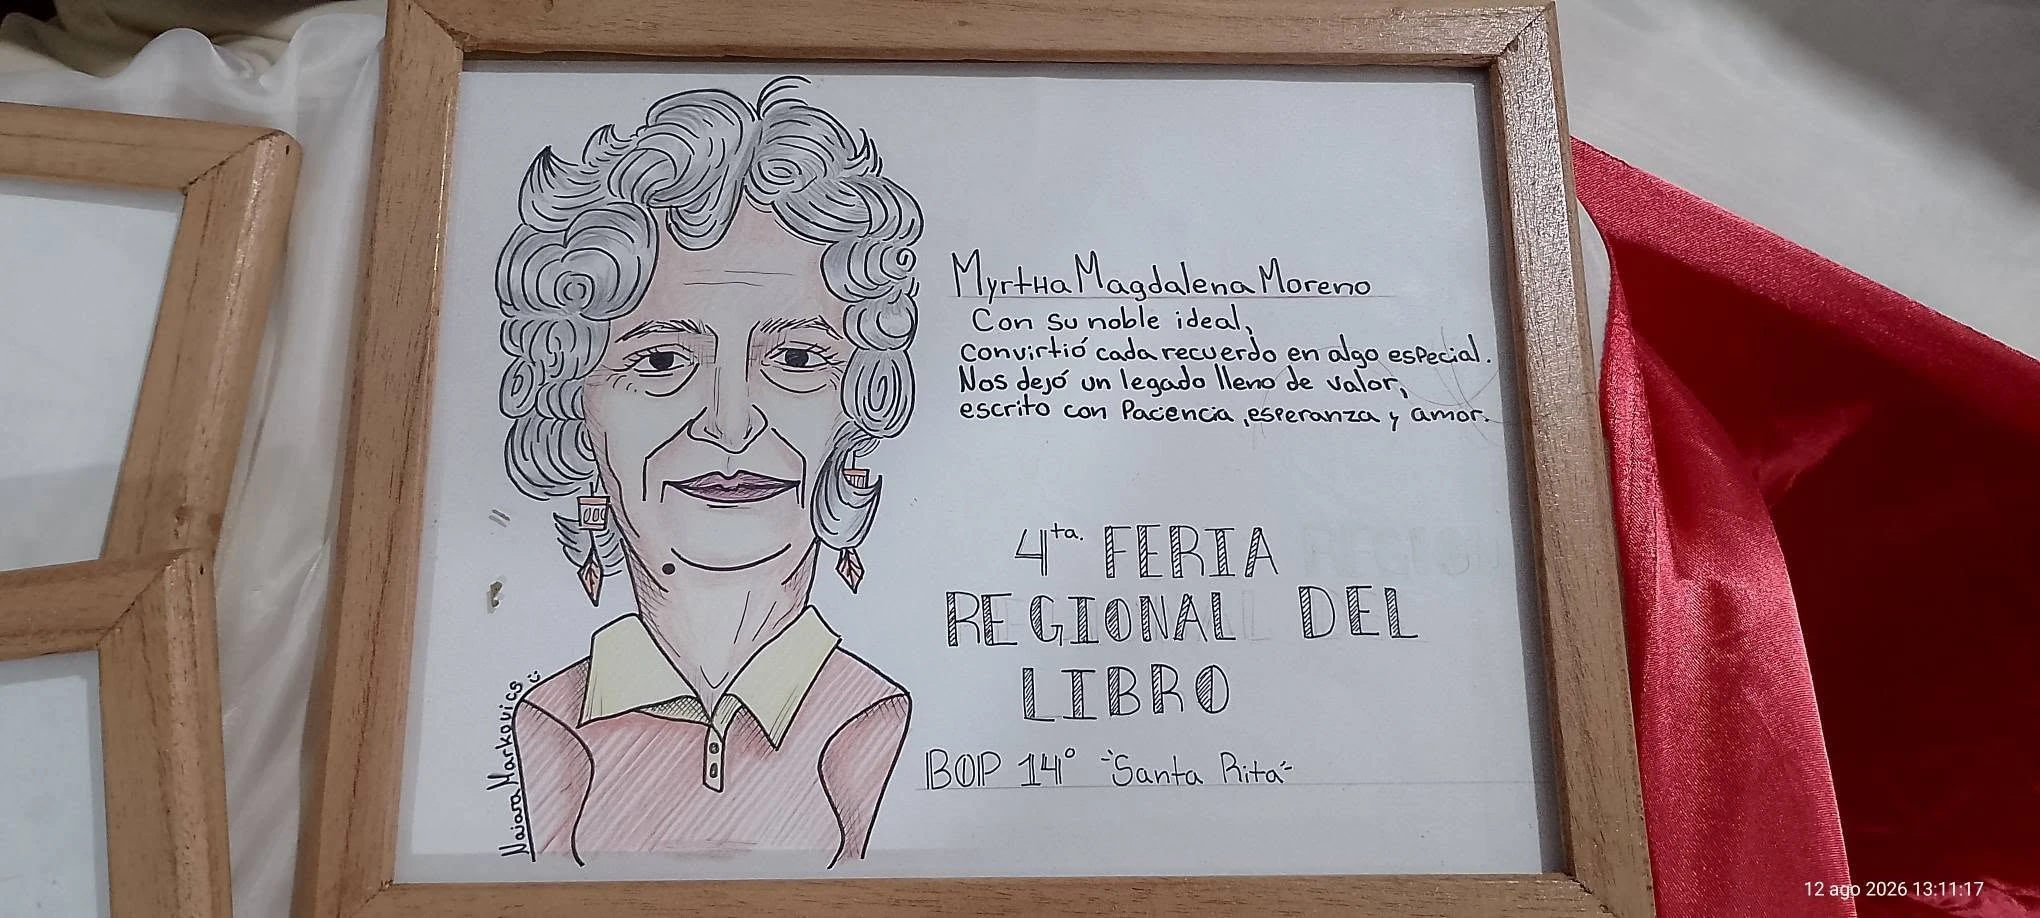 Myrtha Magdalena Moreno
Con su noble ideal,
convirtió cada recuerdo en algo especial.
Nos dejó un legado lleno de valor,
escrito con Pacencia, esperanza y amor.
4ta. FERIA
REGIONAL DEL
LIBRO
BOP 14° "Santa Rita"
Naiara Markovics
12 ago 2026 13:11:17